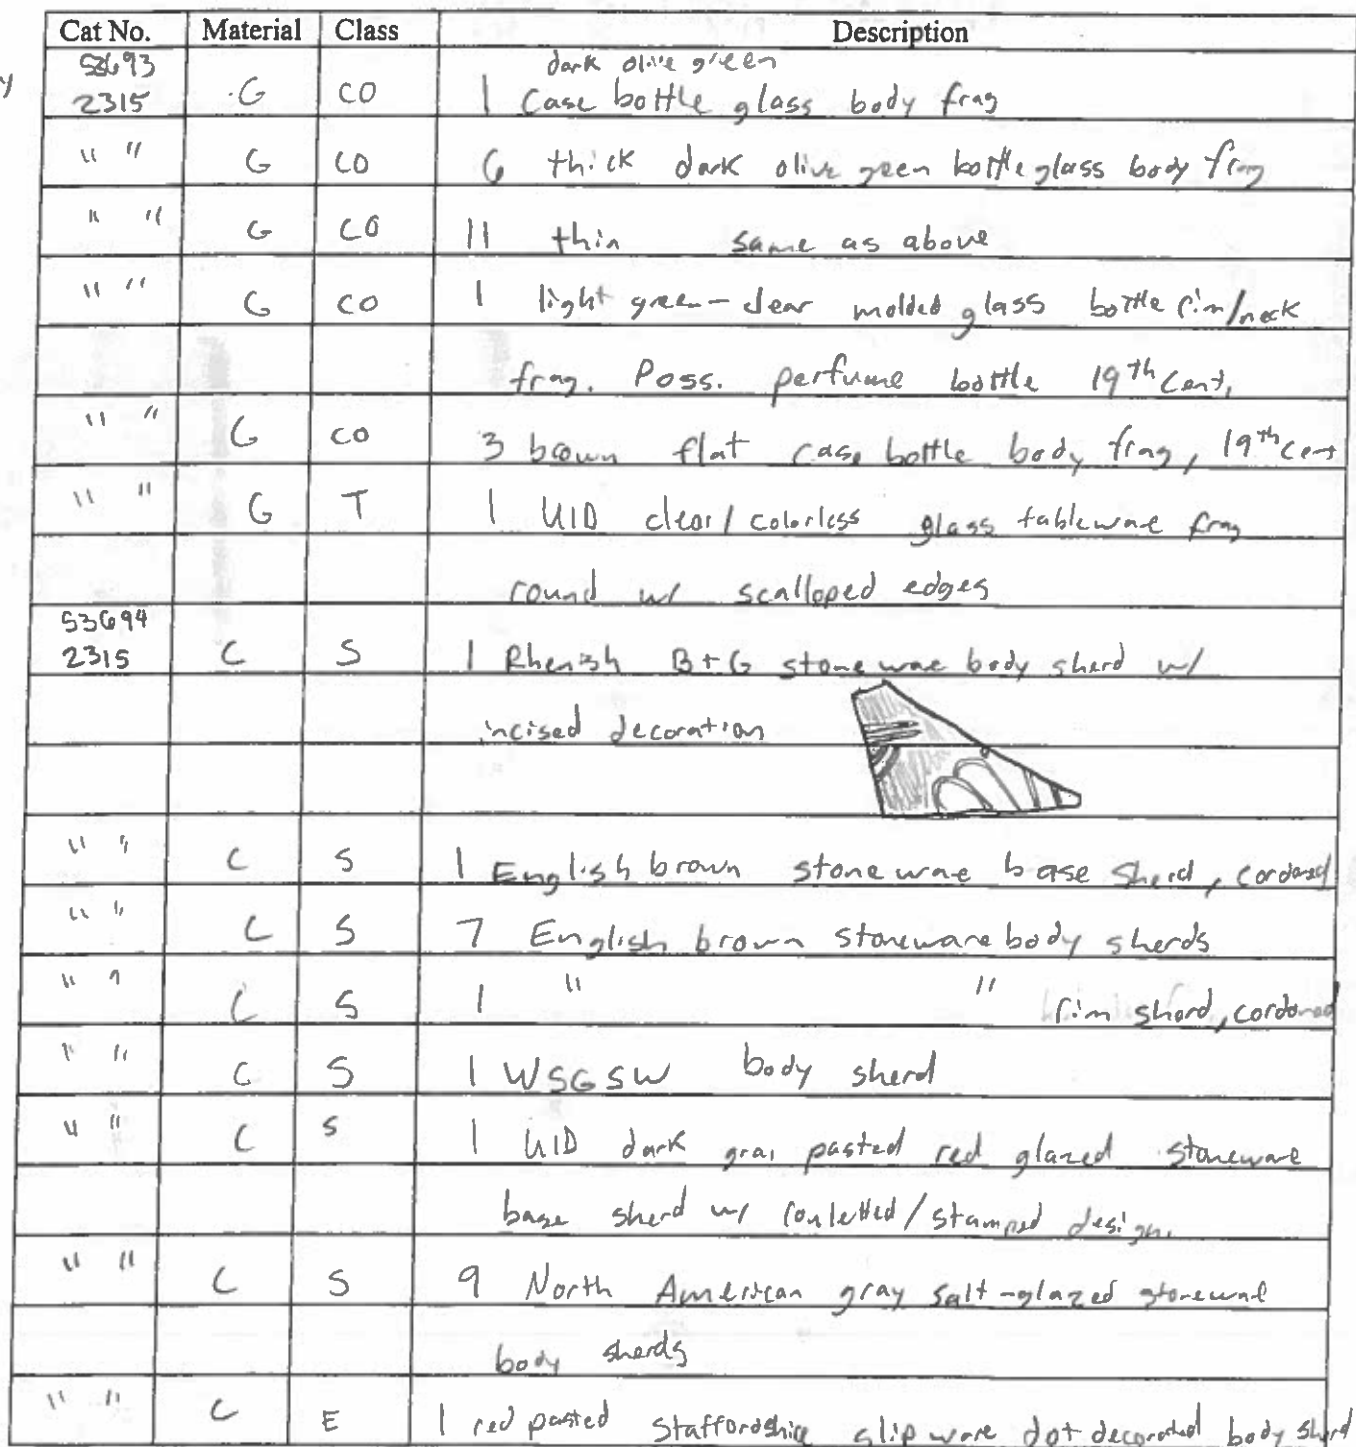 Cat No. Material Class Description
y
53693 dark olive green
2315 G CO 1 Case bottle glass body frag
" " G CO 6 thick dark olive green bottle glass body frag
" " G CO 11 thin same as above
" " G CO 1 light green-clear molded glass bottle rim/neck
frag. Poss. perfume bottle 19th Cent.
" " G CO 3 brown flat case bottle body frag, 19th cent
" " G T 1 UID clear/colorless glass tableware frag
round w/ scalloped edges
53694
2315 C S 1 Rhenish B+G stoneware body sherd w/
incised decoration
" " C S 1 English brown stoneware base sherd, cordoned
" " C S 7 English brown stoneware body sherds
" " C S 1 " " rim sherd, cordoned
" " C S 1 WSGSW body sherd
" " C S 1 UID dark gray pasted red glazed stoneware
base sherd w/ rouletted/stamped design.
" " C S 9 North American gray salt-glazed stoneware
body sherds
" " C E 1 red pasted Staffordshire slipware dot decorated body sherd